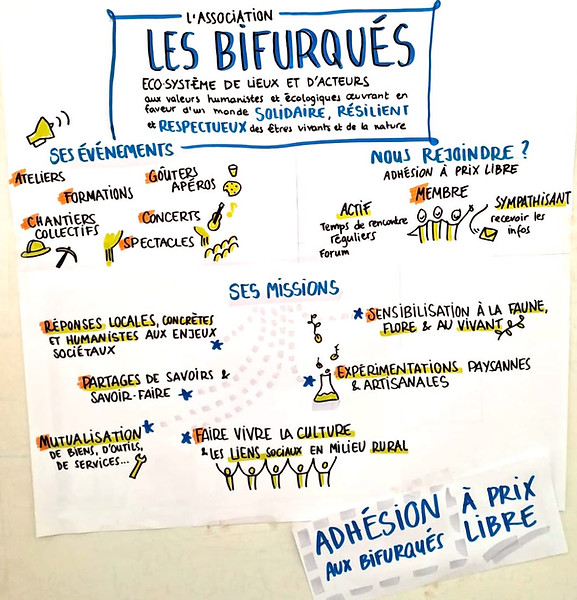 L'ASSOCIATION
LES BIFURQUÉS
ECO-SYSTÈME DE LIEUX ET D'ACTEURS
aux valeurs humanistes et écologiques œuvrant en
faveur d'un monde SOLIDAIRE, RÉSILIENT
et RESPECTUEUX des êtres vivants et de la nature
SES ÉVÉNEMENTS
ATELIERS
FORMATIONS
GOÛTERS
APÉROS
CHANTIERS
COLLECTIFS
CONCERTS
SPECTACLES
NOUS REJOINDRE ?
ADHÉSION À PRIX LIBRE
MEMBRE
ACTIF
Temps de rencontre
réguliers
Forum
SYMPATHISANT
recevoir les
infos
SES MISSIONS
RÉPONSES LOCALES, CONCRÈTES
ET HUMANISTES AUX ENJEUX
SOCIÉTAUX
PARTAGES DE SAVOIRS &
SAVOIR-FAIRE
MUTUALISATION
DE BIENS, D'OUTILS,
DE SERVICES...
SENSIBILISATION À LA FAUNE,
FLORE & AU VIVANT
EXPÉRIMENTATIONS PAYSANNES
& ARTISANALES
FAIRE VIVRE LA CULTURE
& LES LIENS SOCIAUX EN MILIEU RURAL
ADHÉSION À PRIX
AUX BIFURQUÉS LIBRE